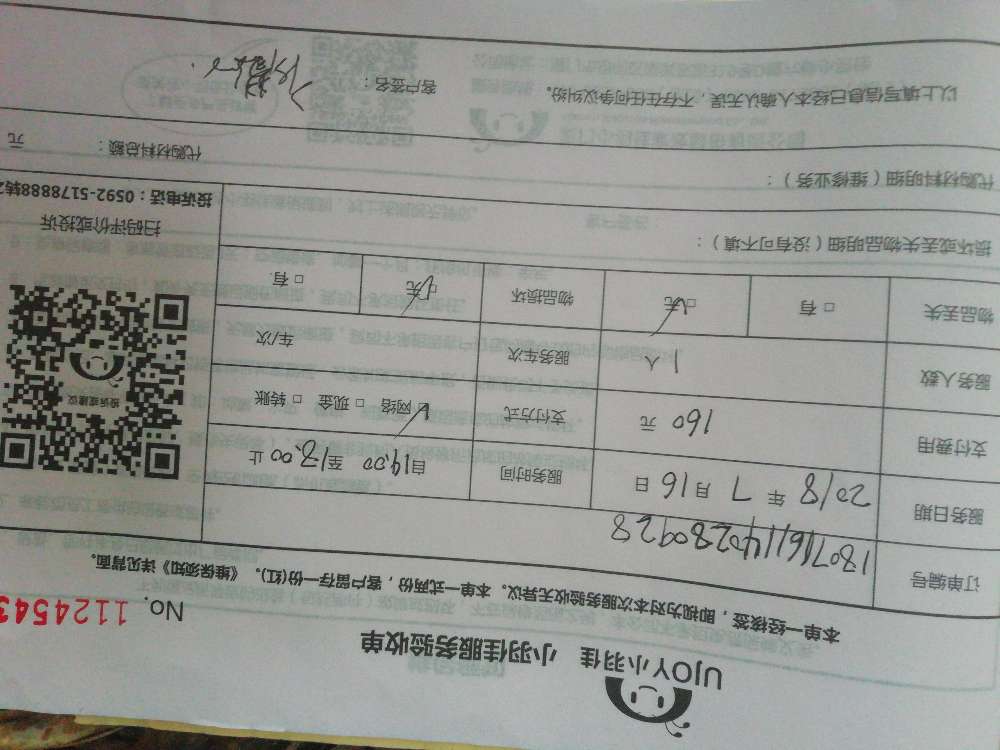 UJOY小羽佳 小羽佳服务验收单
No. 1124543
本单一经核签，即视为对本次服务验收无异议。本单一式两份，客户留存一份(红)。《维保须知》详见背面。
订单编号 1807161140280928
服务日期 2018 年 7 月 16 日 服务时间 自14:00 至18:00 止
支付费用 160 元 支付方式 网络 □ 现金 □ 转账
服务人数 1人 服务车次 车/次
物品丢失 □ 有 □ 无 物品损坏 □ 无 □ 有
投诉或建议
扫码评价或投诉
投诉电话：0592-5178888转2
损坏或丢失物品明细（没有可不填）：
代购材料明细（维修业务）：
代购材料总额： 元
以上填写信息已经本人确认无误，不存在任何争议纠纷。 客户签名：